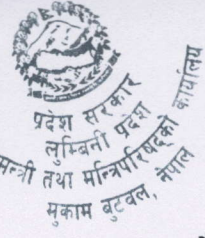 प्रदेश सरकार
लुम्बिनी प्रदेश
मन्त्री तथा मन्त्रिपरिषद्को कार्यालय
मुकाम बुटवल, नेपाल